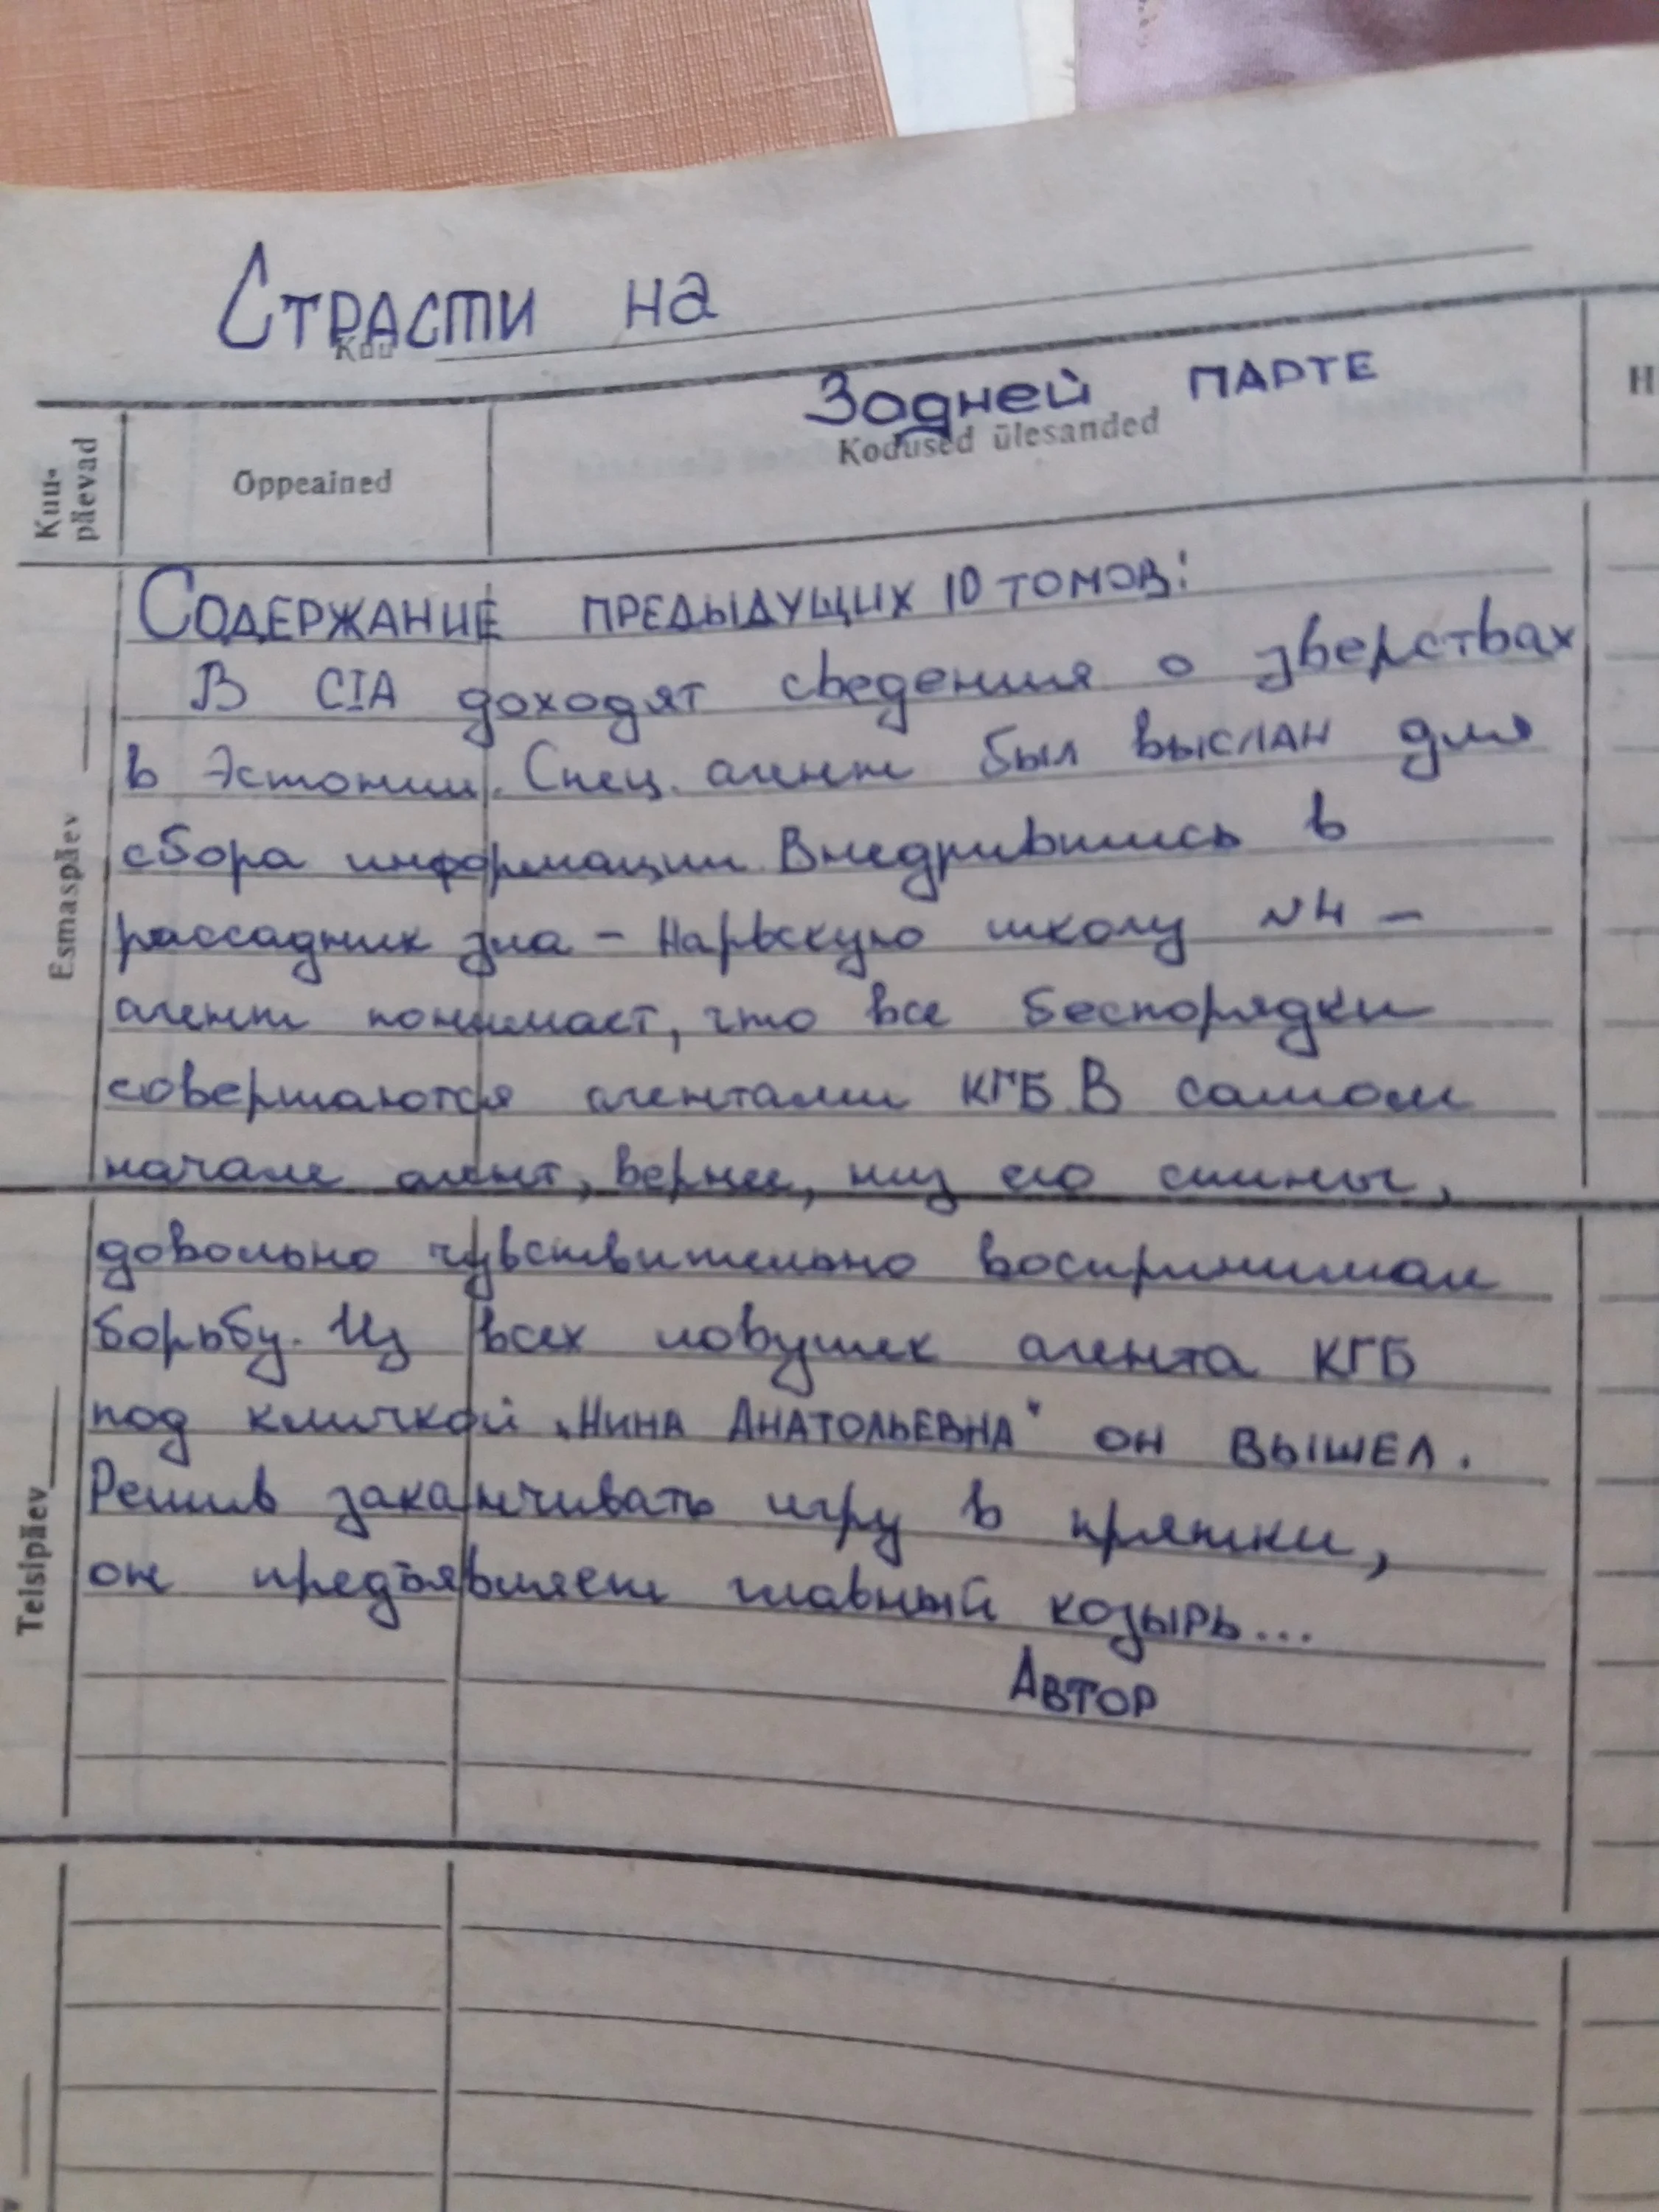 Страсти на
Kuu
Задней парте
Kuu-
päevad
Õppeained
Kodused ülesanded
H
Esmaspäev
Содержание предыдущих 10 томов:
В CIA доходят сведения о зверствах
в Эстонии. Спец. агент был выслан для
сбора информации. Внедрившись в
рассадник зла – Нарвскую школу №4 –
агент понимает, что все беспорядки
совершаются агентами КГБ. В самом
начале агент, вернее, низ его спины,
Teisipäev
довольно чувствительно воспринимал
борьбу. Из всех ловушек агента КГБ
под кличкой „Нина Анатольевна" он вышел.
Решив заканчивать игру в прятки,
он предъявляет главный козырь...
Автор